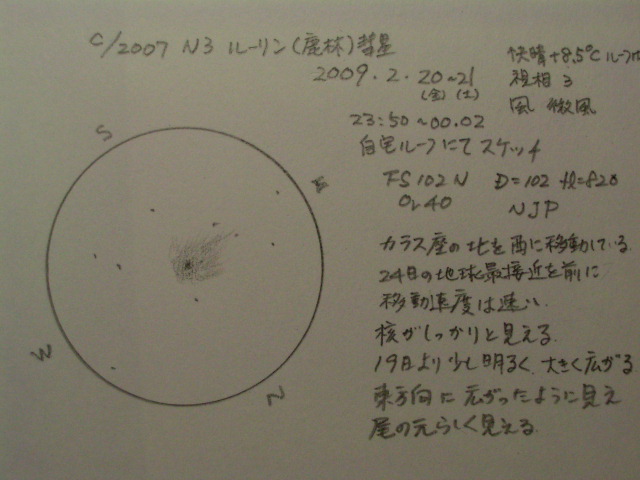 C/2007 N3 ルーリン(鹿林)彗星
2009.2.20~21
(金)(土)
快晴 +8.5℃ ルーフ
視相 3
風 微風
23:50~00.02
自宅ルーフにてスケッチ
FS102N D=102 fl=820
Or40 NJP
S
E
W
N
カラス座の北を西に移動している.
24日の地球最接近を前に
移動速度は速い.
核がしっかりと見える.
19日より少し明るく、大きく広がる
東方向に広がったように見え
尾の元らしく見える.